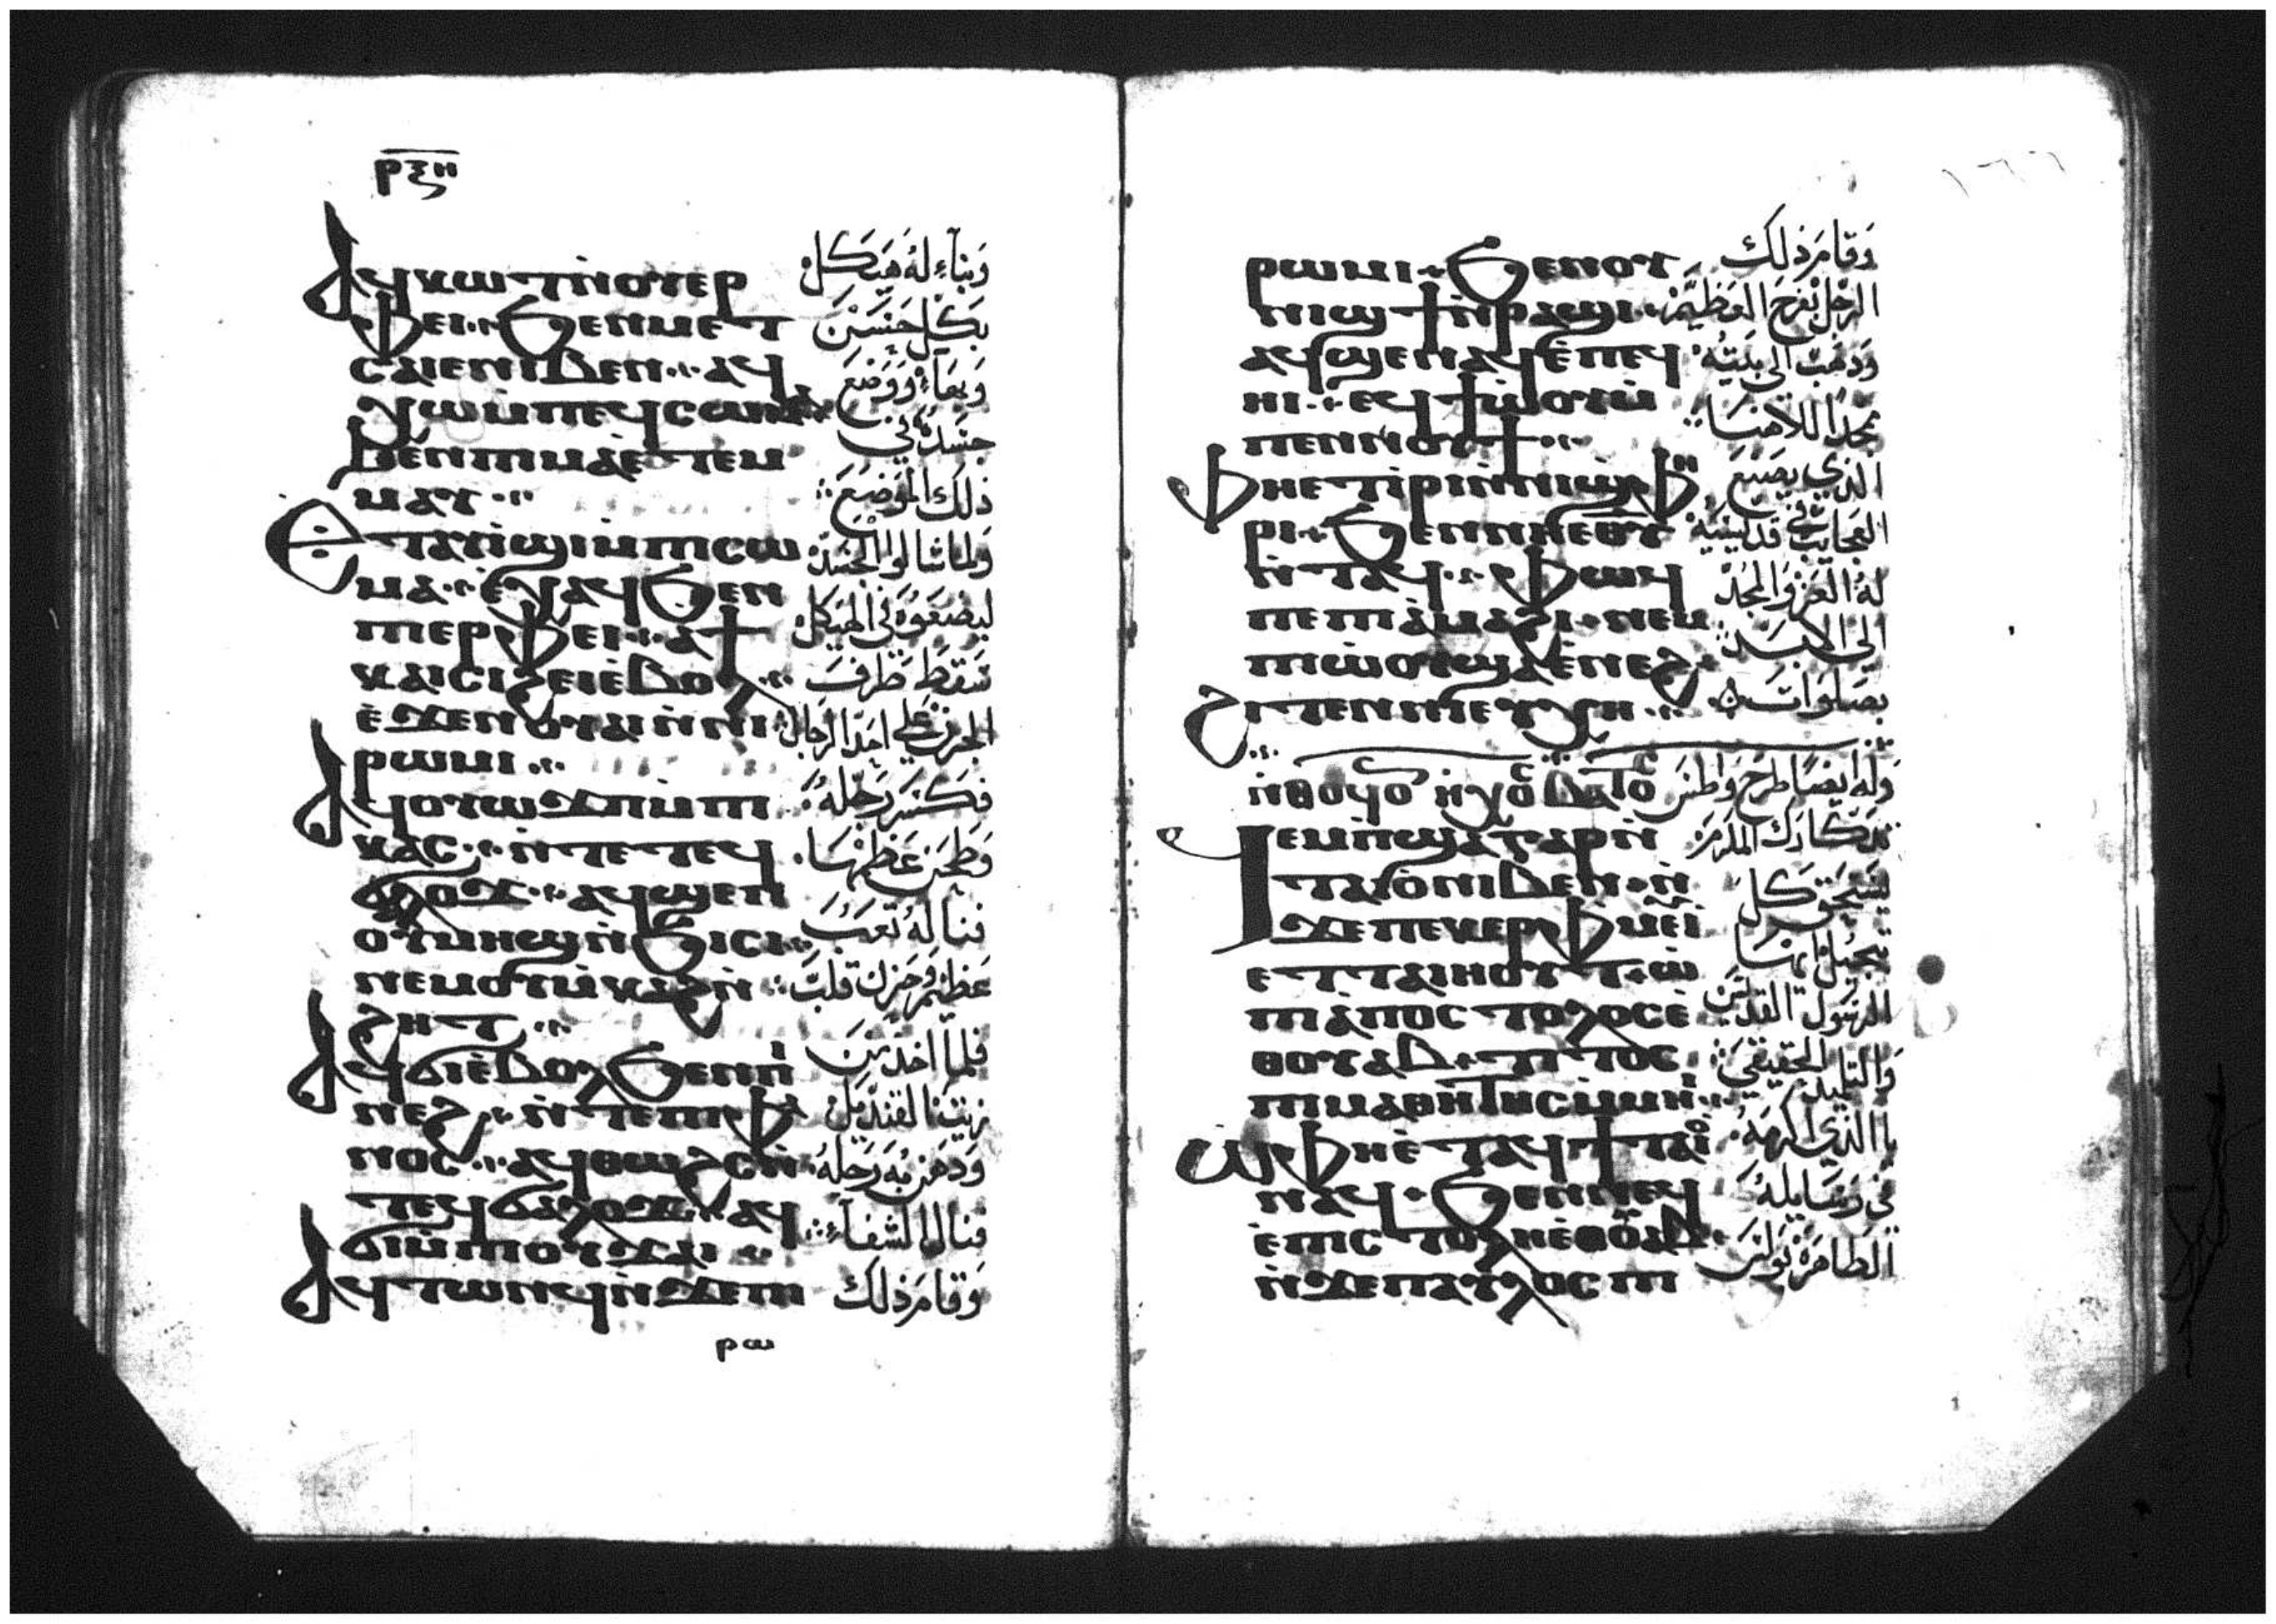 ⲣⲝⲏ
ⲁϥⲕⲱϯⲛ̀ⲟⲩⲉⲣ
ⲫⲉⲓ ϧⲉⲛⲙⲉⲧ
ⲥⲁⲓⲉⲛⲓⲃⲉⲛ ⲁϥ
ⲭⲱⲙ̀ⲡⲉϥⲥⲱⲙⲁ
ϧⲉⲛⲡⲓⲙⲁⲉ̀ⲧⲉⲙ
ⲙⲁⲩ
ⲉⲧⲁⲩϥⲓⲙ̀ⲡⲓⲥⲱ
ⲙⲁ ⲉ̀ⲭⲁϥϧⲉⲛ
ⲡⲓⲉⲣⲫⲉⲓ ⲁϯ
ⲕⲁⲓⲥⲓϩⲉⲓⲉ̀ⲃⲟⲗ
ⲉ̀ϫⲉⲛⲟⲩⲁⲓⲛ̀ⲛⲓ
ⲣⲱⲙⲓ
ⲁϥⲟⲩⲱϫⲡⲙ̀ⲡⲓ
ⲕⲁⲥ ⲛ̀ⲧⲉⲧⲉϥ
ϭⲁⲗⲟϫ ⲁϥϣⲉⲡ
ⲟⲩⲙⲏϣⲛ̀ϧⲓⲥⲓ
ⲛⲉⲙⲟⲩⲙ̀ⲕⲁϩⲛ̀
ϩⲏⲧ
ⲁϥϭⲓⲉ̀ⲃⲟⲗϧⲉⲛⲡⲓ
ⲛⲉϩ ⲛ̀ⲧⲉⲡⲓⲫⲁ
ⲛⲟⲥ ⲁϥⲑⲱϩⲥⲛ̀
ⲧⲉϥϭⲁⲗⲟϫ ⲁϥ
ϭⲓⲙ̀ⲡⲓⲟⲩϫⲁⲓ
ⲁϥⲧⲱⲛϥⲛ̀ϫⲉⲡⲓ
ⲣⲱ
وبناء له هيكل
بكل حسن
وبهاء ووضع
جسده في
ذلك الموضع
ولما شالوا الجسد
ليضعوه في الهيكل
سقط طرف
الجرن على احد الرجال
فكسر رجله
وطحن عظمها
فنال له تعب
عظيم وحزن قلب
فلما اخذ من
زيت القنديل
ودهن به رجله
فنال الشفاء
وقام ذلك
ⲣⲱⲙⲓ ϧⲉⲛⲟⲩ
ⲛⲓϣϯⲛ̀ⲣⲁϣⲓ
ⲁϥϣⲉⲛⲁϥⲉ̀ⲡⲉϥ
ⲏⲓ ⲉϥϯⲱ̀ⲟⲩⲙ̀
ⲡⲉⲛⲛⲟⲩϯ
ⲫⲏⲉⲧⲓ̀ⲣⲓⲛ̀ⲛⲓϣⲫⲏ
ⲣⲓ ϧⲉⲛⲛⲏⲉⲑⲩ
ⲛ̀ⲧⲁϥ ⲫⲱϥ
ⲡⲉⲡⲓⲁ̀ⲙⲁϩⲓ ⲛⲉⲙ
ⲡⲓⲱ̀ⲟⲩϣⲁⲉ̀ⲛⲉϩ
ϩⲓⲧⲉⲛⲛⲓⲉⲩⲭⲏ
ⲛ̀ⲑⲟϥⲟ ⲛ̀ⲭⲟ ⲃⲁⲧⲟ
ϥⲉⲙ̀ⲡϣⲁⲅⲁⲣⲛ̀
ⲧⲁⲓⲟ̀ⲛⲓⲃⲉⲛ ⲛ̀
ϫⲉⲡⲉⲕⲉⲣⲫⲙⲉⲩⲓ̀
ⲉⲧⲧⲁⲓⲏⲟⲩⲧ ⲱ̀
ⲡⲓⲁ̀ⲡⲟⲥⲧⲟⲗⲟⲥⲉ̀
ⲑⲟⲩⲁⲃ ⲧⲓⲧⲟⲥ
ⲡⲓⲙⲁⲑⲏⲧⲏⲥⲙ̀ⲙⲏⲓ
ⲱ̀ⲫⲏⲉ̀ⲧⲁϥϯⲧⲁⲓⲟ
ⲛⲁϥ ϧⲉⲛⲛⲉϥ
ⲉ̀ⲡⲓⲥⲧⲟⲗⲏⲉ̀ⲑⲟⲩⲁⲃ
ⲛ̀ϫⲉⲡⲁⲩⲗⲟⲥ ⲡⲓ
وقام ذلك
الرجل بفرح العظيم
وذهب الى بيته
ممجدا لالاهنا
الذي يصنع
العجايب في قديسيه
له العز والمجد
الى الابد
بصلوات
وله ايضا طرح واطس
يستحق كل
تبجيل
الرسول القديس
والتلميذ الحقيقي
يا الذي اكرمه
في رسايله
الطاهرة بولس